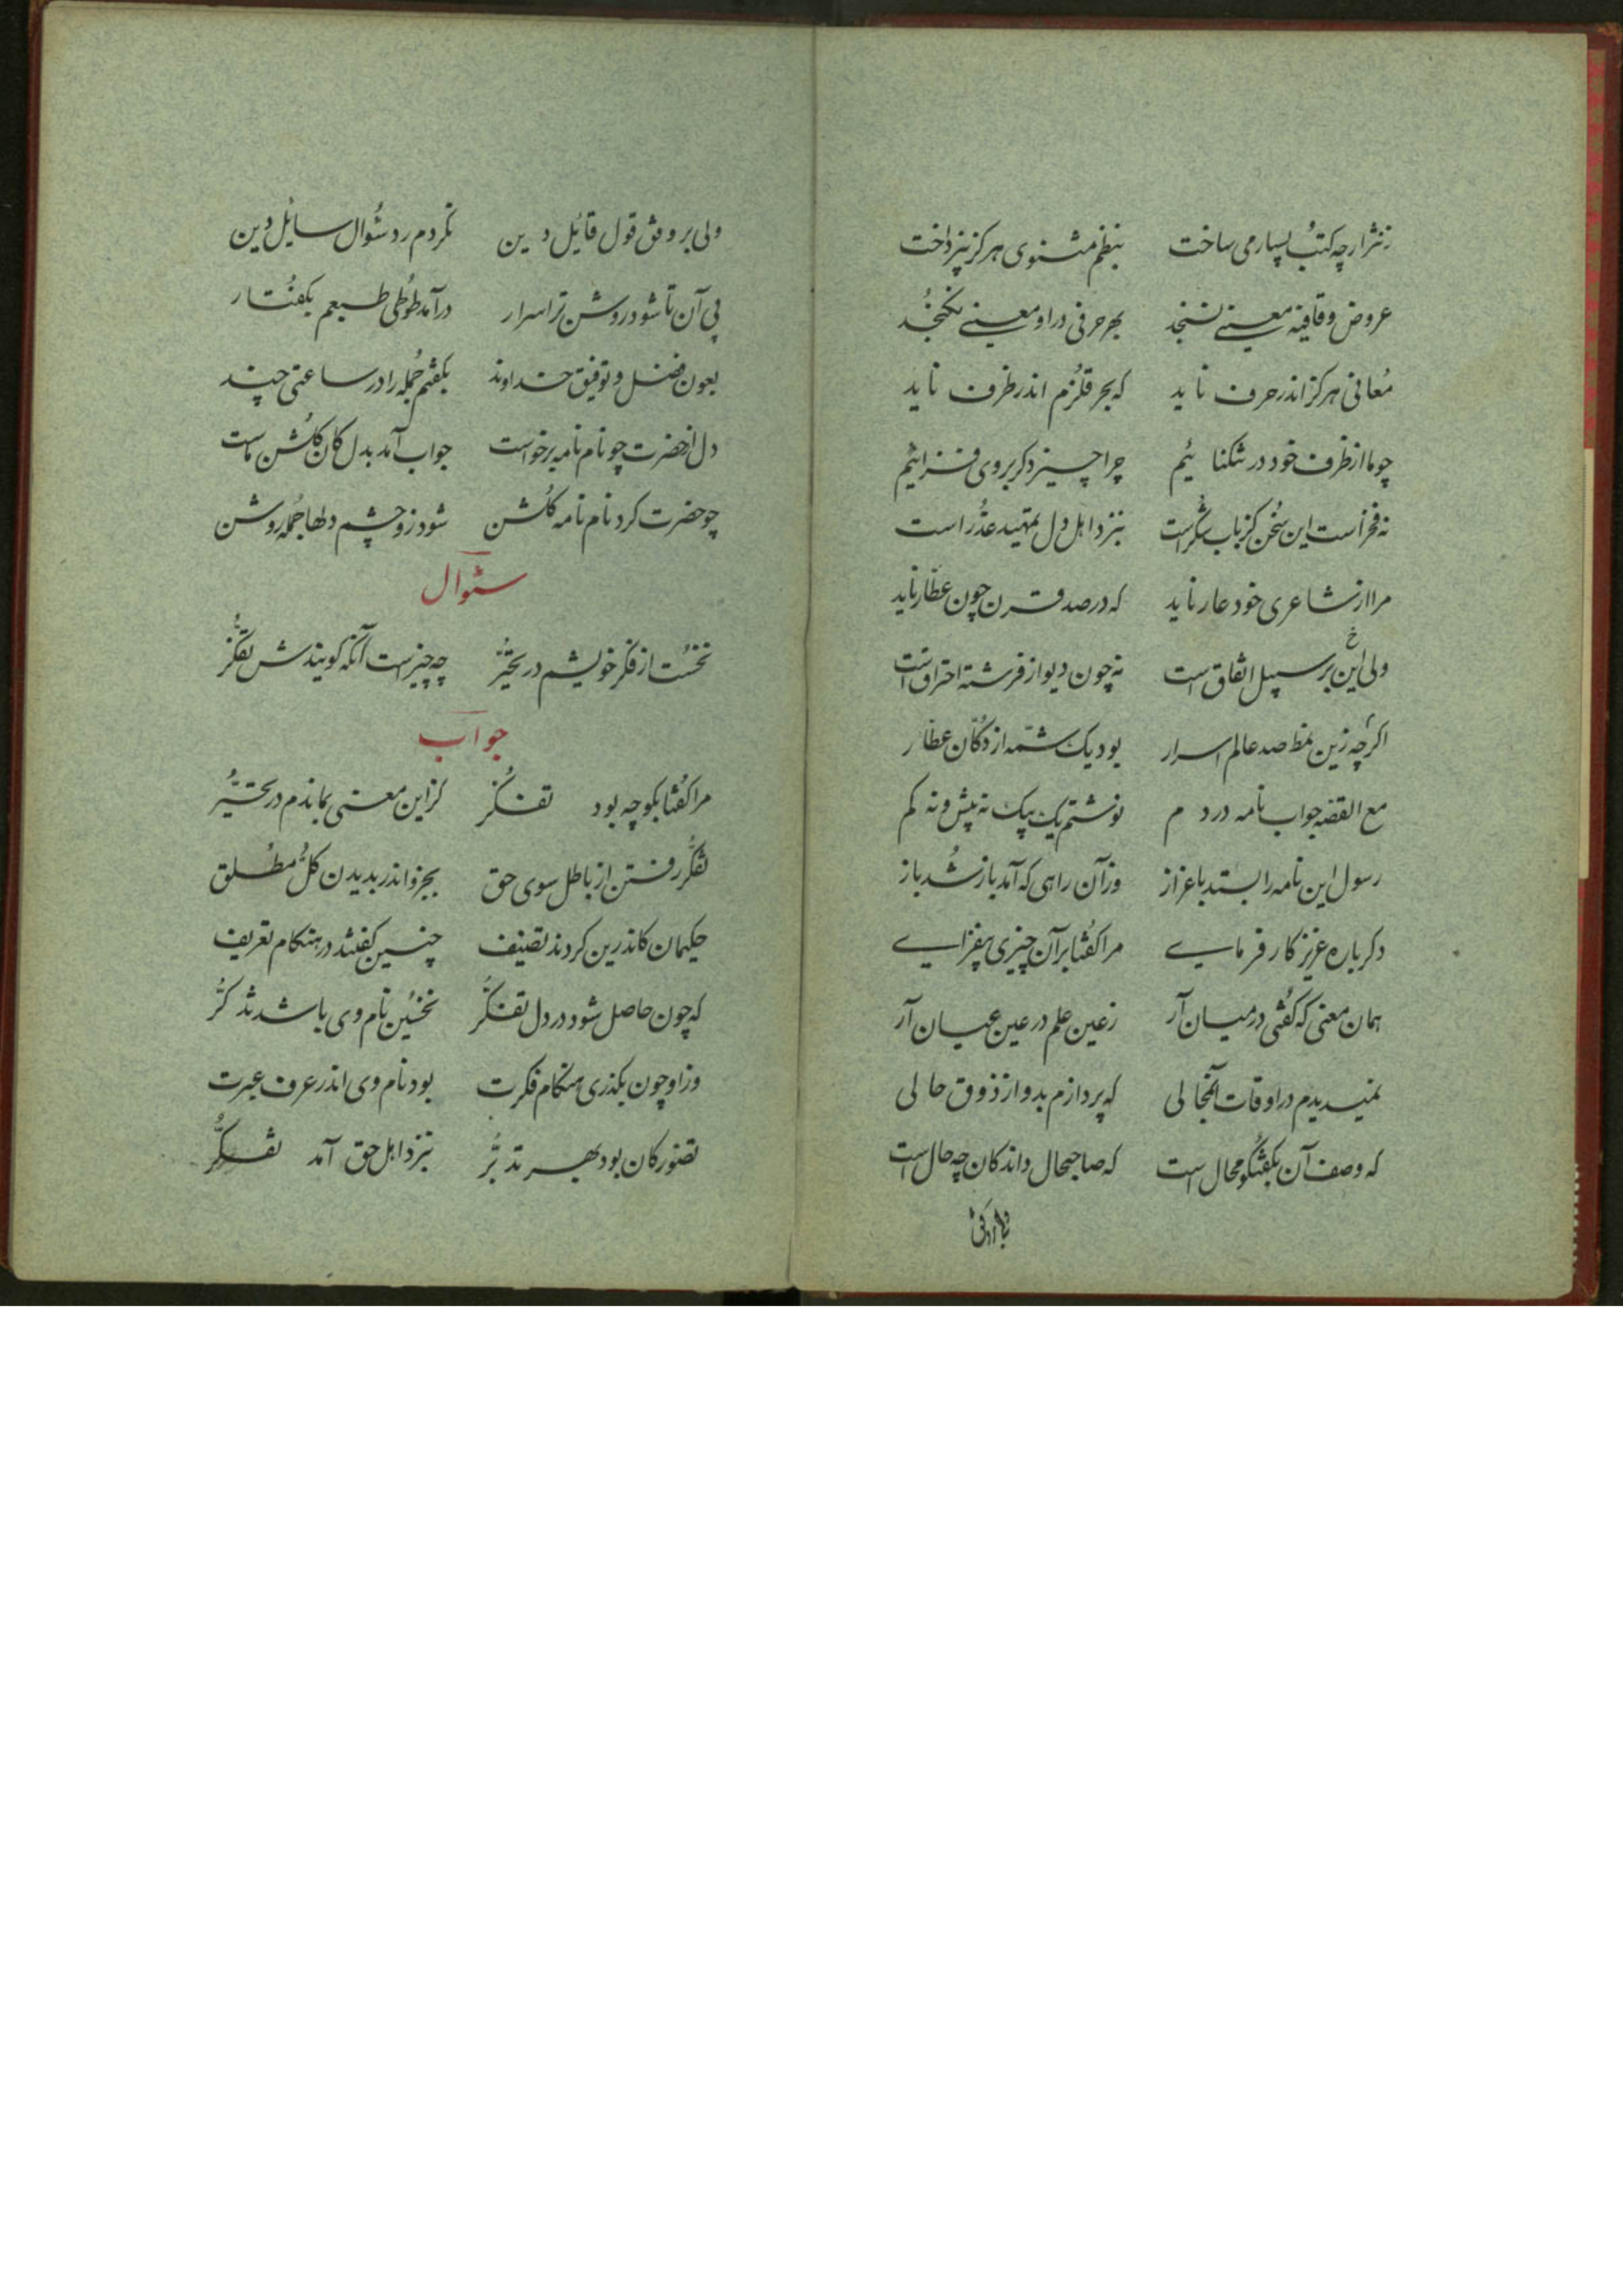 ز نثر ارچه کتب بسیار می ساخت بنظم مثنوی هرگز نپرداخت
عروض و قافیه معنی نسنجد بهر حرفی در او معنی نگنجد
معانی هرگز اندر حرف ناید که بحر قلزم اندر ظرف ناید
چو ما از ظرف خود در تنگنائیم چرا چیز دگر بروی فزائیم
نه فخر است این سخن کز باب شکر است بنزد اهل دل تمهید عذر است
مرا از شاعری خود عار ناید که در صد قرن چون عطار ناید
ولی این بر سبیل اتفاق است نه چون دیو از فرشته احتراق است
اگرچه زین نمط صد عالم اسرار بود یک شمه از دکان عطار
مع القصه جواب نامه در دم نوشتم یک بیک نه بیش و نه کم
رسول این نامه را بستد باعزاز وز آن راهی که آمد باز شد باز
دگرباره عزیز کار فرمای مرا گفتا بر آن چیزی بیفزای
همان معنی که گفتی در میان آر ز عین علم در عین عیان آر
نمیدیدم در اوقات آنمجالی که پردازم بدو از ذوق حالی
که وصف آن بگفتگو محال است که صاحبحال داند کان چه حال است
ولی بر وفق قول قایل دین نکردم رد سؤال سایل دین
پی آن تا شود روشن تر اسرار درآمد طوطی طبعم بگفتار
بعون فضل و توفیق خداوند بگفتم جمله را در ساعتی چند
دل از حضرت چو نام نامه برخواست جواب آمد بدل کان گلشن ماست
چو حضرت کرد نام نامه گلشن شود زو چشم دلها جمله روشن
سئوال
نخست از فکر خویشم در تحیر چه چیز است آنکه گویندش تفکر
جواب
مرا گفتا بگو چه بود تفکر کز این معنی بماندم در تحیر
تفکر رفتن از باطل سوی حق بجزو اندر بدیدن کل مطلق
حکیمان کاندرین کردند تصنیف چنین گفتند در هنگام تعریف
که چون حاصل شود در دل تفکر نخستین نام وی باشد تذکر
وز او چون بگذری هنگام فکرت بود نام وی اندر عرف عبرت
تصور کان بود بهر تدبر بنزد اهل حق آمد تفکر